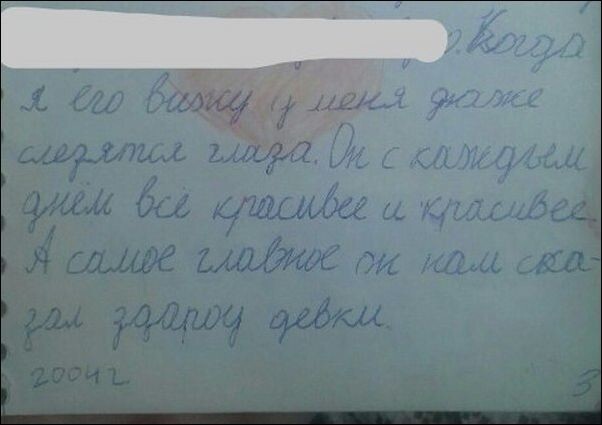 . Когда
я его вижу у меня даже
слезятся глаза. Он с каждым
днём всё красивее и красивее
А самое главное он нам ска-
зал здароу девки.
2004г
3